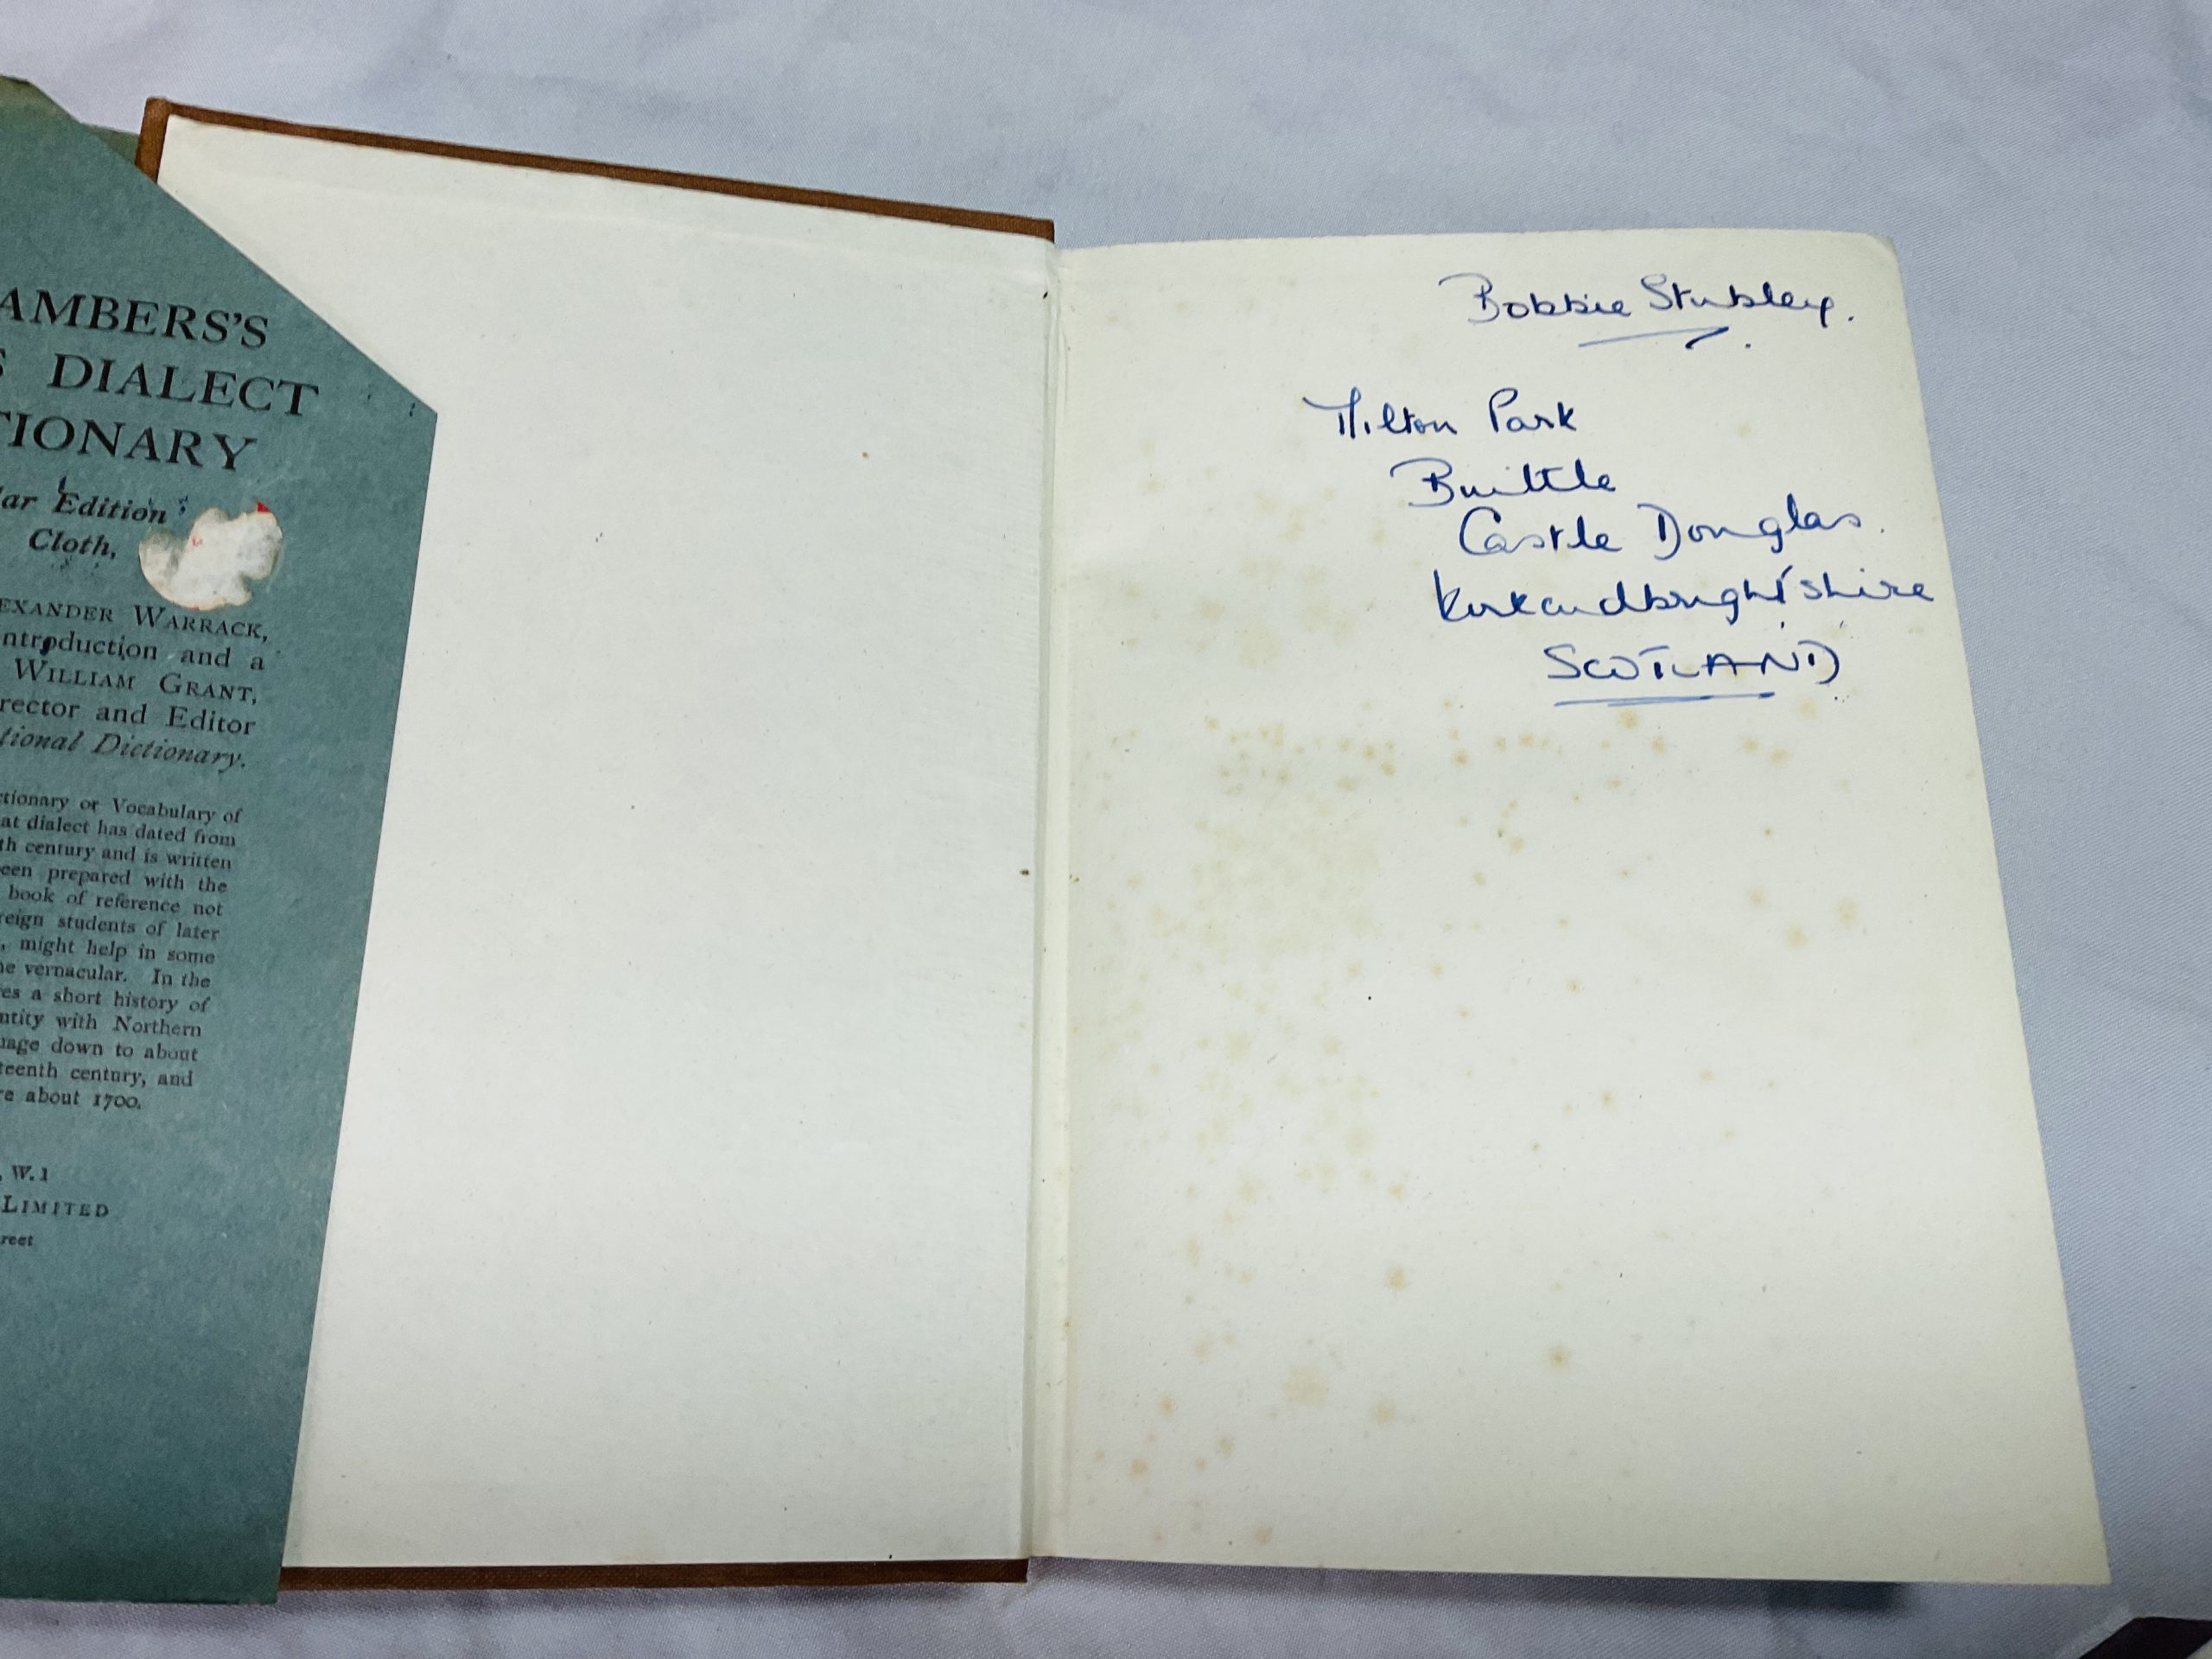 AMBERS'S
S DIALECT
TIONARY
lar Edition
Cloth,
EXANDER WARRACK,
ntroduction and a
WILLIAM GRANT,
rector and Editor
tional Dictionary.
ctionary or Vocabulary of
at dialect has dated from
th century and is written
een prepared with the
book of reference not
reign students of later
, might help in some
he vernacular. In the
es a short history of
ntity with Northern
uage down to about
teenth century, and
re about 1700.
, W.1
LIMITED
reet
Bobbie Stubley.
Milton Park
Buittle
Castle Douglas.
Kirkcudbrightshire
SCOTLAND